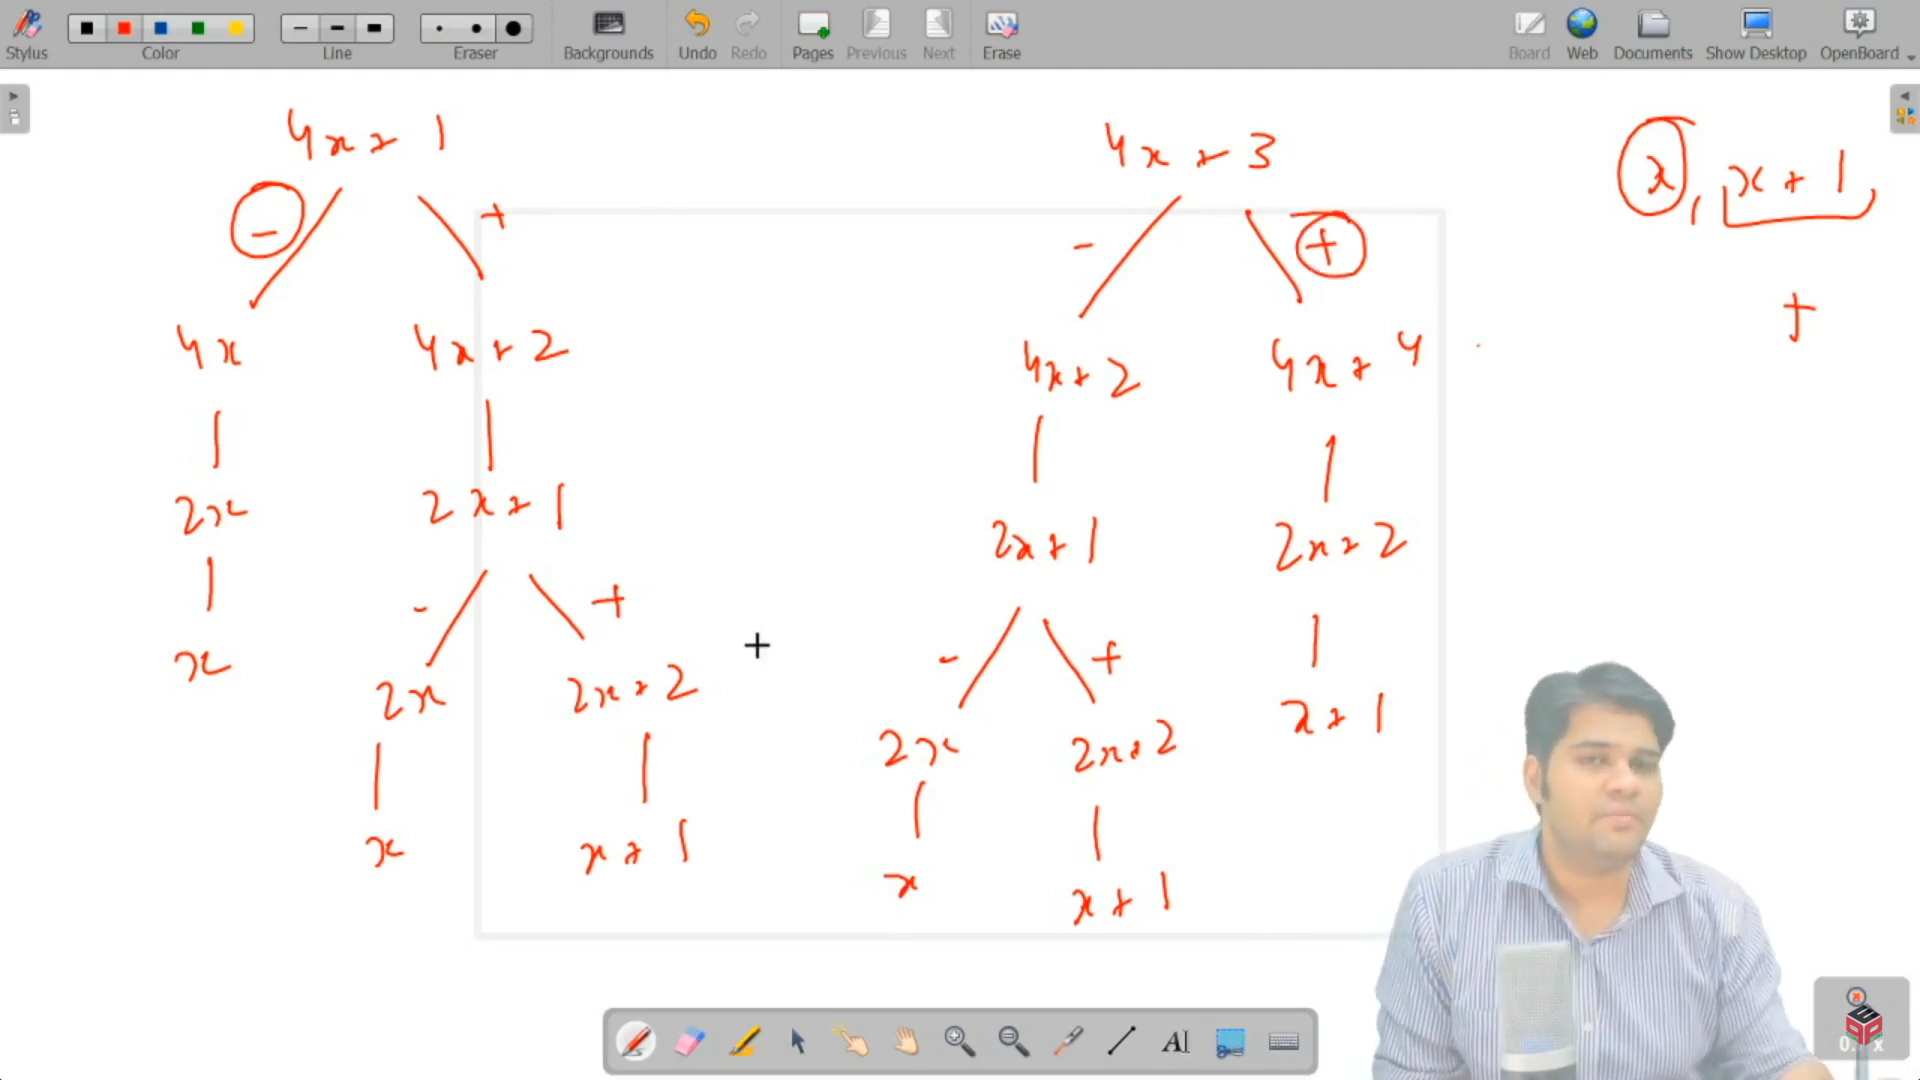 Stylus Color Line Eraser Backgrounds Undo Redo Pages Previous Next Erase Board Web Documents Show Desktop OpenBoard
4x + 1
4x + 3
x, x + 1,
- +
- +
+
4x 4x + 2
4x + 2 4x + 4
2x 2x + 1
2x + 1 2x + 2
- +
- +
x
2x 2x + 2
2x 2x + 2
x + 1
x x + 1
x x + 1
AI